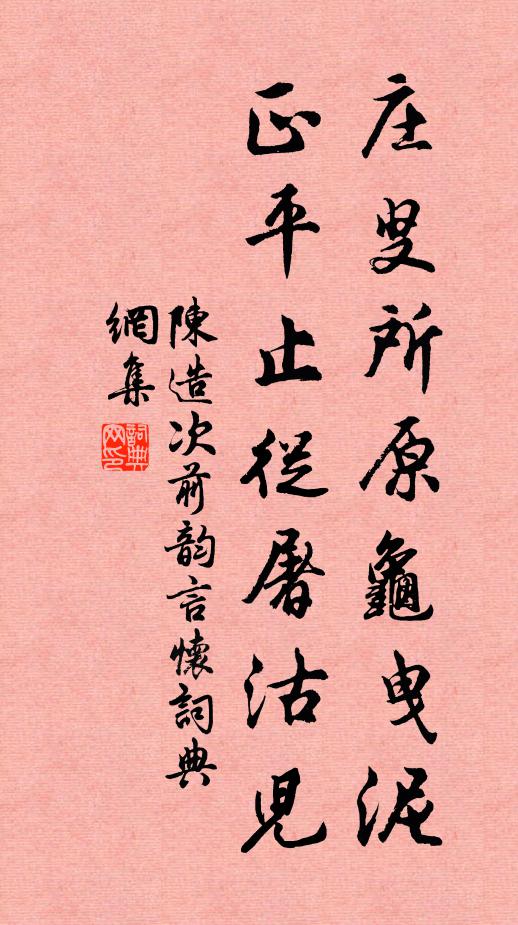 庄叟所原龜曳泥
正平止從屠沽兒
陳造次前韵言懷詞典
網集
詞典